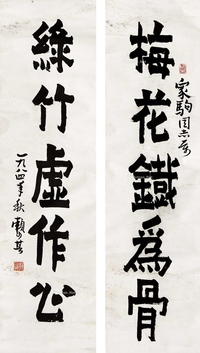 梅花鐵爲骨
家駒同志属
綠竹虛作心
一九八四年秋 賴少其